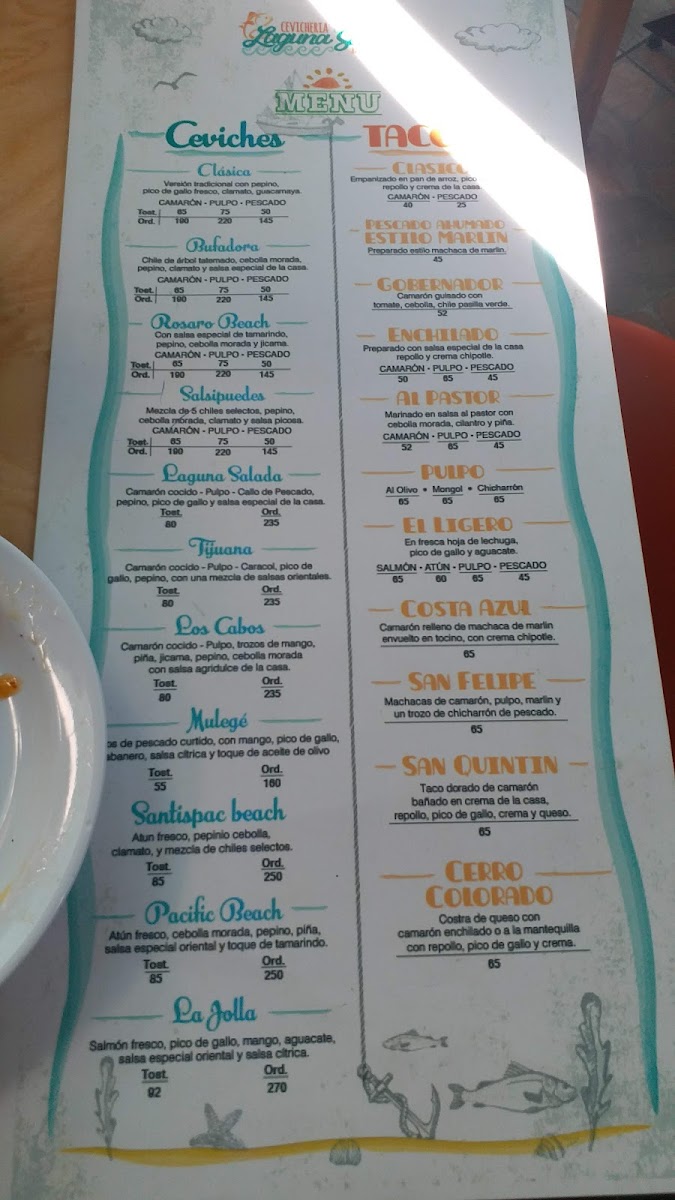 CEVICHERIA
Laguna
MENU
Ceviches
Clásica
Versión tradicional con pepino,
pico de gallo fresco, clamato, guacamaya.
CAMARÓN - PULPO - PESCADO
Tost. 65 75 50
Ord. 190 220 145
Bufadora
Chile de árbol tatemado, cebolla morada,
pepino, clamato y salsa especial de la casa.
CAMARÓN - PULPO - PESCADO
Tost. 65 75 50
Ord. 190 220 145
Rosaro Beach
Con salsa especial de tamarindo,
pepino, cebolla morada y jicama.
CAMARÓN - PULPO - PESCADO
Tost. 65 75 50
Ord. 190 220 145
Salsipuedes
Mezcla de 5 chiles selectos, pepino,
cebolla morada, clamato y salsa picosa.
CAMARÓN - PULPO - PESCADO
Tost. 65 75 50
Ord. 190 220 145
Laguna Salada
Camarón cocido - Pulpo - Callo de Pescado,
pepino, pico de gallo y salsa especial de la casa.
Tost. Ord.
80 235
Tijuana
Camarón cocido - Pulpo - Caracol, pico de
gallo, pepino, con una mezcla de salsas orientales.
Tost. Ord.
80 235
Los Cabos
Camarón cocido - Pulpo, trozos de mango,
piña, jicama, pepino, cebolla morada
con salsa agridulce de la casa.
Tost. Ord.
80 235
Mulegé
os de pescado curtido, con mango, pico de gallo,
abanero, salsa cítrica y toque de aceite de olivo
Tost. Ord.
55 160
Santispac beach
Atun fresco, pepinio cebolla,
clamato, y mezcla de chiles selectos.
Tost. Ord.
85 250
Pacific Beach
Atún fresco, cebolla morada, pepino, piña,
salsa especial oriental y toque de tamarindo.
Tost. Ord.
85 250
La Jolla
Salmón fresco, pico de gallo, mango, aguacate,
salsa especial oriental y salsa cítrica.
Tost. Ord.
92 270
TACO
CLASICO
Empanizado en pan de arroz, pico
repollo y crema de la casa
CAMARÓN - PESCADO
40 25
PESCADO AHUMADO
ESTILO MARLIN
Preparado estilo machaca de marlin.
45
GOBERNADOR
Camarón guisado con
tomate, cebolla, chile pasilla verde.
52
ENCHILADO
Preparado con salsa especial de la casa
repollo y crema chipotle.
CAMARÓN - PULPO - PESCADO
50 65 45
AL PASTOR
Marinado en salsa al pastor con
cebolla morada, cilantro y piña.
CAMARÓN - PULPO - PESCADO
52 65 45
PULPO
Al Olivo • Mongol • Chicharrón
65 65 65
EL LIGERO
En fresca hoja de lechuga,
pico de gallo y aguacate.
SALMÓN - ATÚN - PULPO - PESCADO
65 60 65 45
COSTA AZUL
Camarón relleno de machaca de marlin
envuelto en tocino, con crema chipotle.
65
SAN FELIPE
Machacas de camarón, pulpo, marlin y
un trozo de chicharrón de pescado.
65
SAN QUINTIN
Taco dorado de camarón
bañado en crema de la casa,
repollo, pico de gallo, crema y queso.
65
CERRO
COLORADO
Costra de queso con
camarón enchilado o a la mantequilla
con repollo, pico de gallo y crema.
65